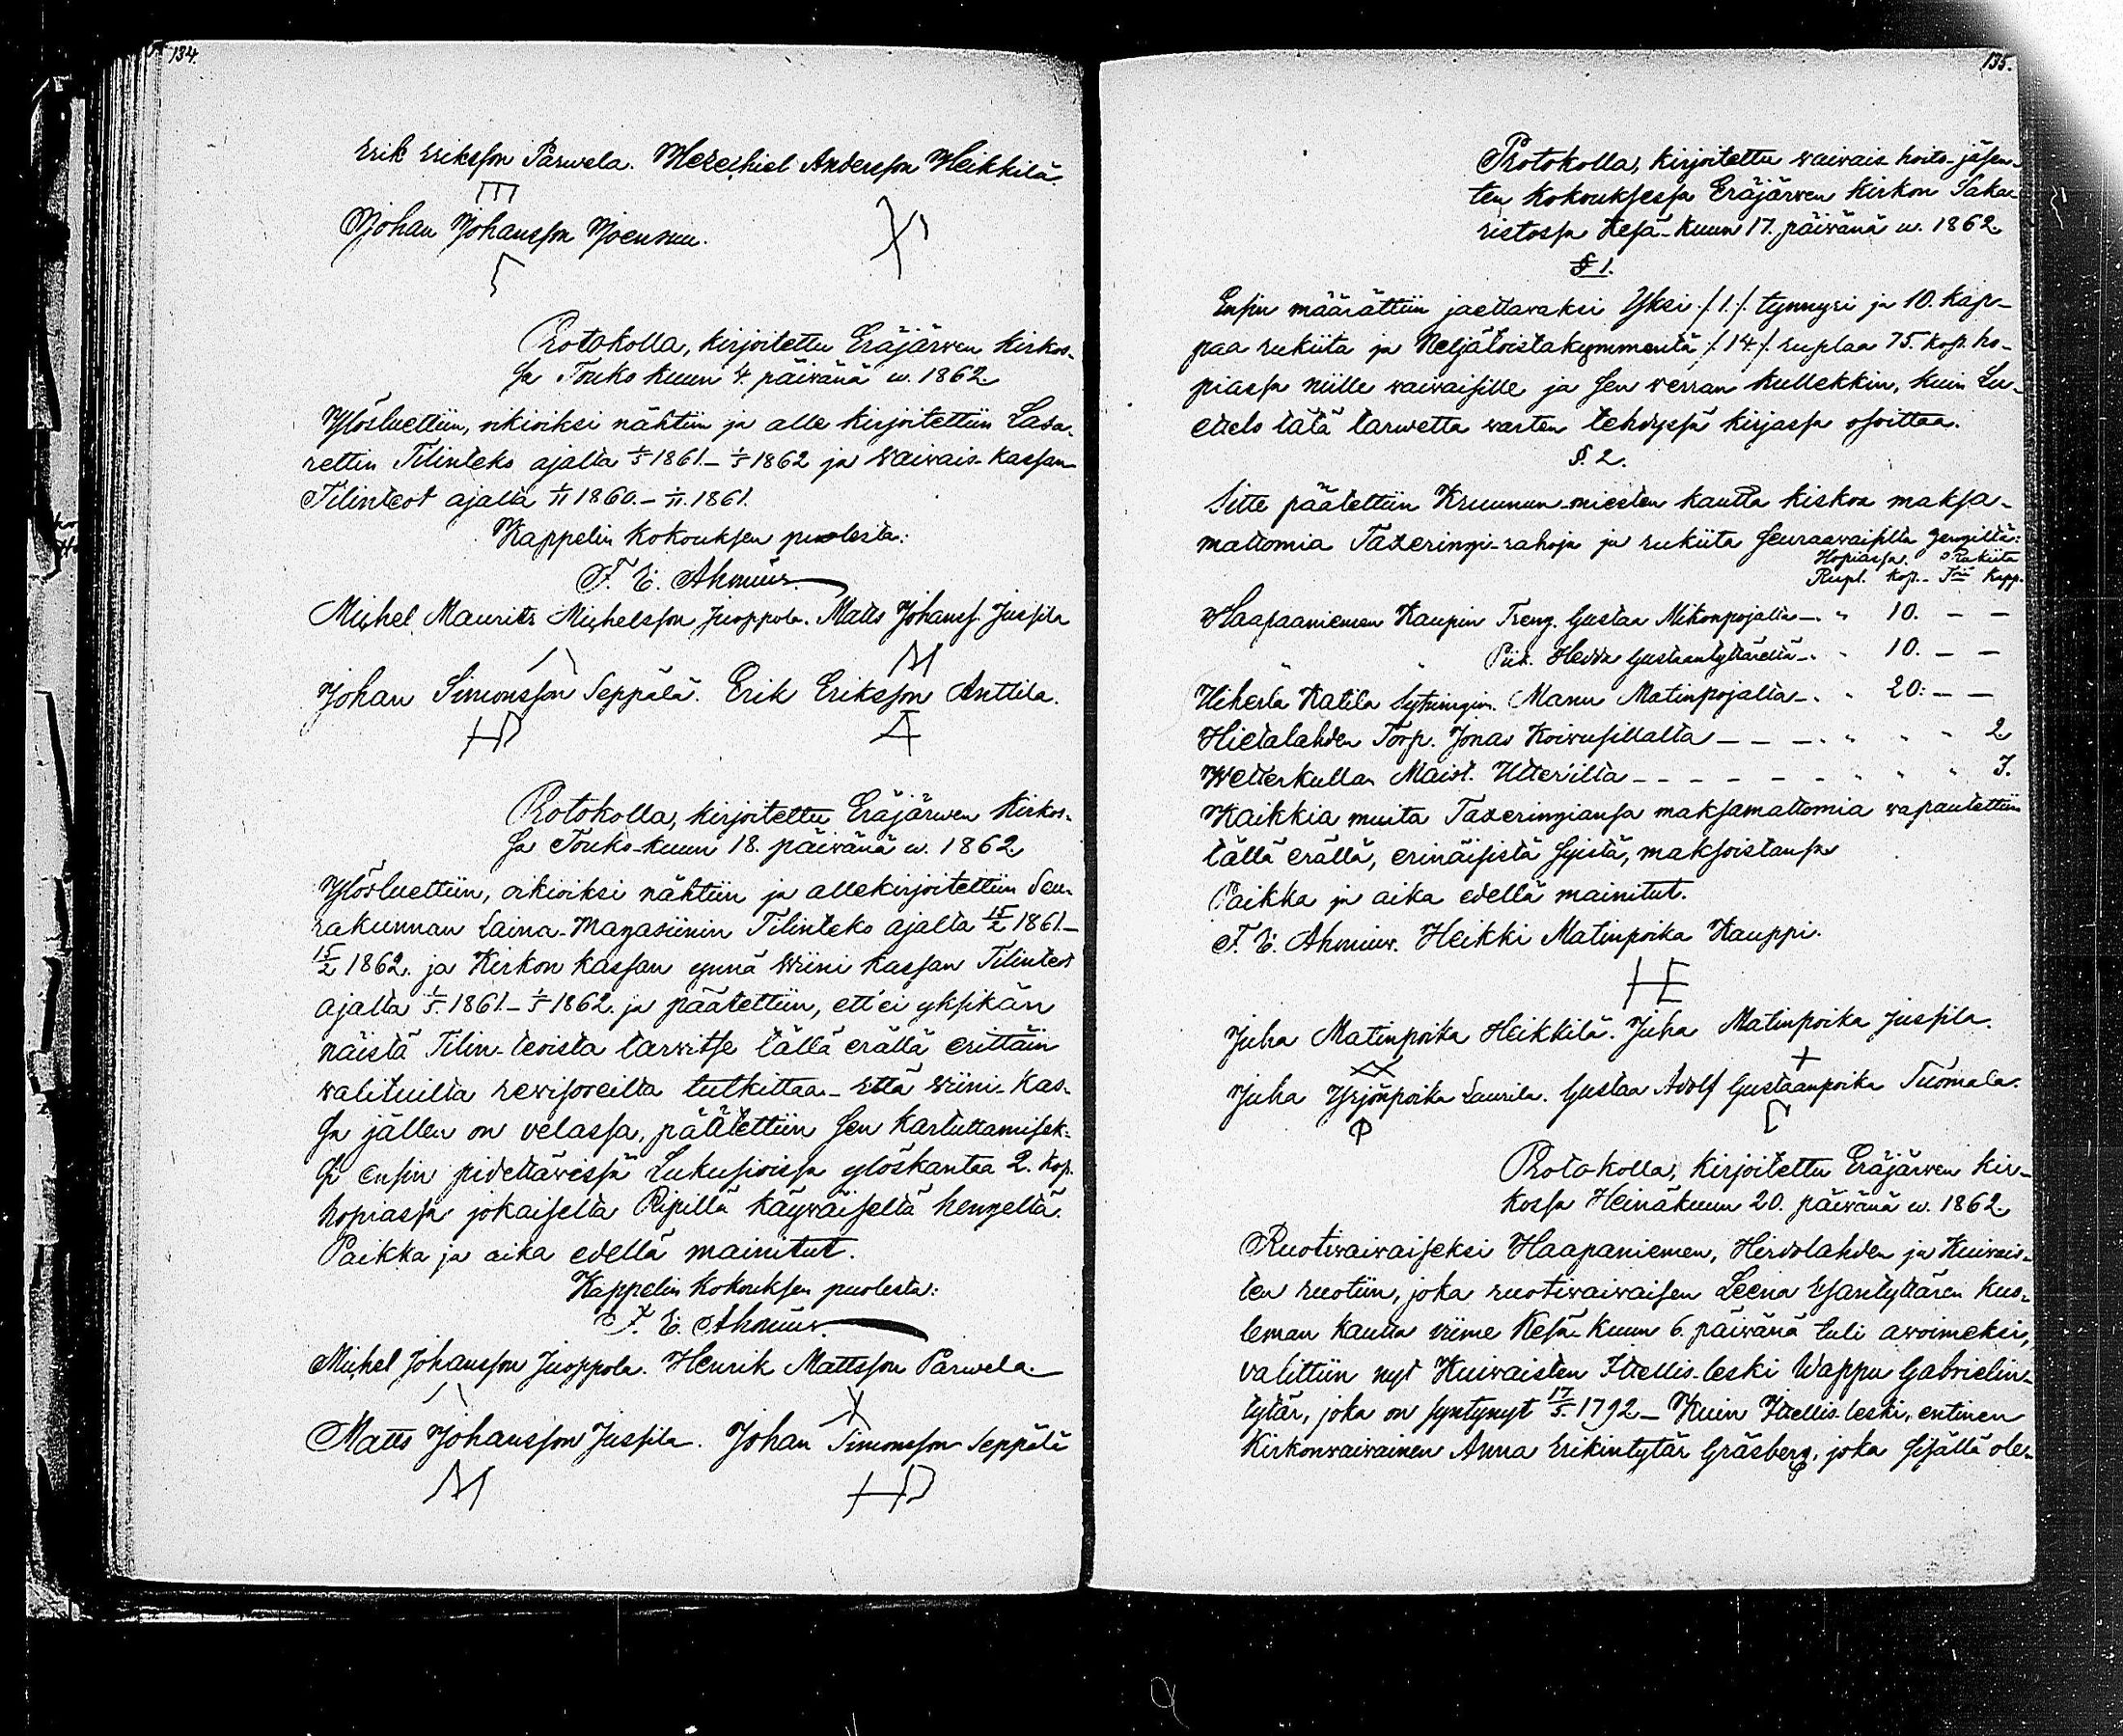 134.
Erik Eriksson Parwela. Hezechiel Andersson Heikkilä.
Johan Johansson Joensuu.
Protokolla, kirjoitettu Eräjärwen kirkos-
sa Touko kuun 4. päiwänä w. 1862.
Ylösluettiin, oikioiksi nähtiin ja alle kirjoitettiin Lasa-
rettin Tilinteko ajalta 1/5 1861. – 1/5 1862 ja Waiwais-kassan
Tilinteot ajalta 1/11 1860. – 1/11. 1861.
Kappelin kokouksen puolesta:
F. E. Ahonius.
Michel Maurits Michelsson Juoppola. Matts Johanss. Jussila
Johan Simonsson Seppälä. Erik Eriksson Anttila.
Protokolla, kirjoitettu Eräjärwen kirkos-
sa Touko-kuun 18. päiwänä w. 1862.
Ylösluettiin, oikioiksi nähtiin ja allekirjoitettiin Seu-
rakunnan Laina-Magasiinin Tilinteko ajalta 15/2 1861. –
15/2 1862. ja Kirkon kassan ynnä Wiini kassan Tilinteot
ajalta 1/5. 1861. – 1/5 1862. ja päätettiin, ett'ei yksikän
näistä Tilin-teoista tarwitse tällä erällä erittäin
walituilta rewisoreilta tutkittaa. – Että Wiini-kas-
sa jällen on velassa, päätettiin sen kartuttamisek-
si ensin pidettäwissä Lukusioissa ylöskantaa 2. kop.
hopiassa jokaiselta Ripillä käywäiseltä hengeltä.
Paikka ja aika edellä mainitut.
Kappelin kokouksen puolesta:
F. E. Ahonius.
Michel Johansson Juoppola. Henrik Mattsson Parwela.
Matts Johansson Jussila. Johan Simonsson Seppälä
135.
Protokolla, kirjoitettu waiwais hoito-jäsen-
ten kokouksessa Eräjärwen kirkon Saka-
ristossa Kesä-kuun 17. päiwänä w. 1862.
§ 1.
Ensin määrättiin jaettawaksi Yksi /: 1 :/ tynnyri ja 10. kap-
paa rukiita ja Neljätoistakymmentä /: 14 :/ ruplaa 75. kop. ho-
piassa niille waiwaisille ja sen werran kullekkin, kuin Lu-
ettelo tätä tarwetta warten tehdyssä kirjassa osoittaa.
§. 2.
Sitte päätettiin Kruunun-miesten kautta kiskoa maksa-
mattomia Taxeringi-rahoja ja rukiita seuraawaisilta hengiltä:
Hopiassa. Rukiita
Rupl. kop. Kapp.
Haapaaniemen Kaupin Treng. Gustaa Mikonpojalta – " 10. – –
" " Piik. Hedda Gustaantyttäreltä – " 10. – –
Hiherla Katila Manu Matinpojalta – " 20: – –
Hietalahden Torp. Jonas Koiwusillalta – – – " " " 2
Wetterkullan Maist. Utter'ilta – – – – – " " " 3.
Kaikkia muita Taxeringiansa maksamattomia wapautettiin
tällä erällä, erinäisistä syistä, maksoistansa
Paikka ja aika edellä mainitut.
F. E. Ahonius. Heikki Matinpoika Kauppi.
Juha Matinpoika Heikkilä. Juha Matinpoika Jussila.
Juha Yrjönpoika Laurila. Gustaa Adolf Gustaanpoika Tuomala.
Protokolla, kirjoitettu Eräjärwen kir-
kossa Heinäkuun 20. päiwänä w. 1862.
Ruotiwaiwaiseksi Haapaniemen, Hirdolahden ja Kuiwais-
ten ruotiin, joka ruotiwaiwaisen Leena Esantyttären kuo-
leman kautta wiime Kesä-kuun 6. päiwänä tuli awoimeksi,
valittiin nyt Kuiwaisten Ittellis-leski Wappu Gabrielin-
tytär, joka on syntynyt 17/5. 1792 – Kuin Ittellis-leski, entinen
Kirkonwaiwainen Anna Erikintytär Gräsberg, joka sisällä ole-